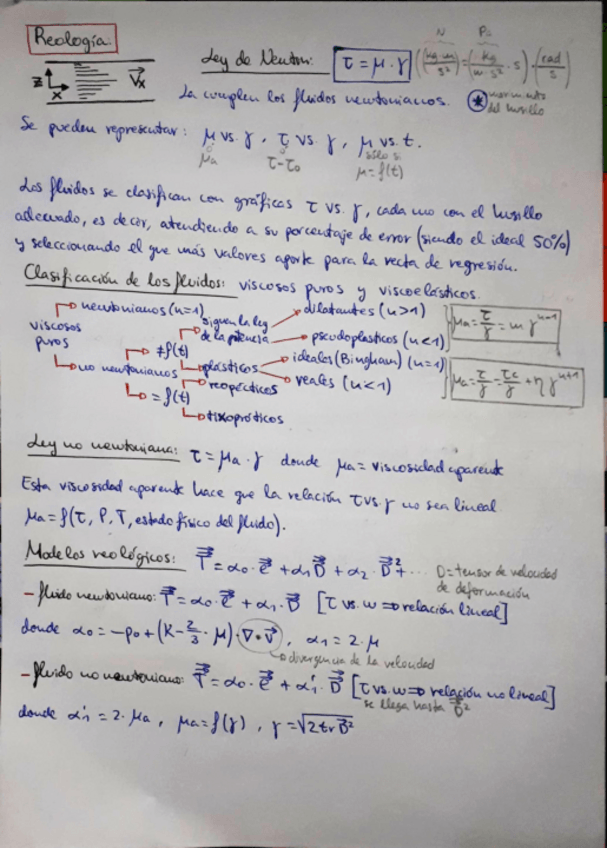 Reología:
Z X V⃗x
Ley de Newton: τ = μ · γ ((kg·m/s²) = (kg/m·s² · s) · (rad/s))
N Pa
La cumplen los fluidos newtonianos. * movimiento del husillo
Se pueden representar: μ vs. γ, τ vs γ, μ vs. t.
μa τ-τ₀ sólo si μ=f(t)
Los fluidos se clasifican con gráficas τ vs. γ, cada uno con el husillo
adecuado, es decir, atendiendo a su porcentaje de error (siendo el ideal 50%)
y seleccionando el que más valores aporte para la recta de regresión.
Clasificación de los fluidos: viscosos puros y viscoelásticos.
viscosos puros
newtonianos (n=1)
no newtonianos
≠f(t)
siguen la ley de la potencia
dilatantes (n>1)
pseudoplasticos (n<1)
μa = τ/γ = m γⁿ⁻¹
plásticos
ideales (Bingham) (n=1)
reales (n<1)
μa = τ/γ = τc/γ + η γⁿ⁺¹
= f(t)
reopécticos
tixopróticos
Ley no newtoniana: τ = μa · γ donde μa = viscosidad aparente
Esta viscosidad aparente hace que la relación τ vs. γ no sea lineal
μa = f(τ, P, T, estado físico del fluido).
Modelos reológicos: T = α₀ · e + α₁ D + α₂ · D² + ... D = tensor de velocidad
de deformación
- fluido newtoniano: T = α₀ · e + α₁ · D [τ vs. w ⇒ relación lineal]
donde α₀ = -p₀ + (K - 2/3 · μ) · ∇ · v⃗, α₁ = 2 · μ
divergencia de la velocidad
- fluido no newtoniano: T = α₀ · e + α'₁ · D [τ vs. w ⇒ relación no lineal]
se llega hasta D²
donde α'₁ = 2 · μa, μa = f(γ), γ = √2 tr D²